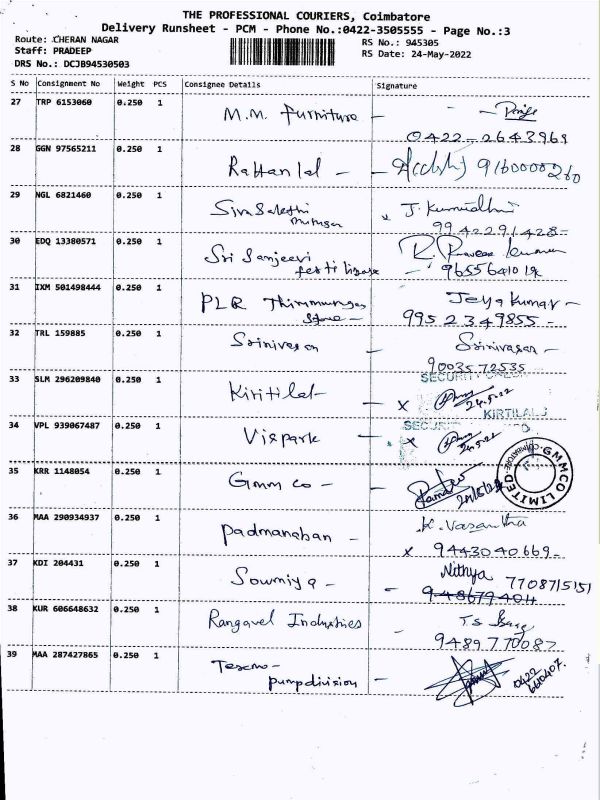 THE PROFESSIONAL COURIERS, Coimbatore
Delivery Runsheet - PCM - Phone No.:0422-3505555 - Page No.:3
Route: CHERAN NAGAR
Staff: PRADEEP
DRS No.: DCJB94530503
RS No.: 945305
RS Date: 24-May-2022
S No Consignment No Weight PCS Consignee Details Signature
27 TRP 6153060 0.250 1 M.M. Furniture -
0422-2643969
28 GGN 97565211 0.250 1 Rattan lal - 9160000260
29 NGL 6821460 0.250 1 J. Kumudhni
9942291428-
30 EDQ 13380571 0.250 1 Sri Sanjeevi R. Praveen kumar
31 IXM 501498444 0.250 1 PLR Jeya kumar -
Store - 9952349855 -
32 TRL 159885 0.250 1 Srinivasan - Srinivasan -
9003572535
SECURITY
33 SLM 296209840 0.250 1 Kiritilal - x 24.5.22
KIRTILAL J
34 VPL 939067487 0.250 1 Vispark - x 24.5.22
35 KRR 1148054 0.250 1 Gmm co -
GMMCO LIMITED
COIMBATORE
36 MAA 290934937 0.250 1 Padmanaban - K. Vasantha
x 9443040669-
37 KDI 204431 0.250 1 Sowmiya - Nithya 7708715151
38 KUR 606648632 0.250 1 Rangavel Industries -
9489770087
39 MAA 287427865 0.250 1
pump division - 0422